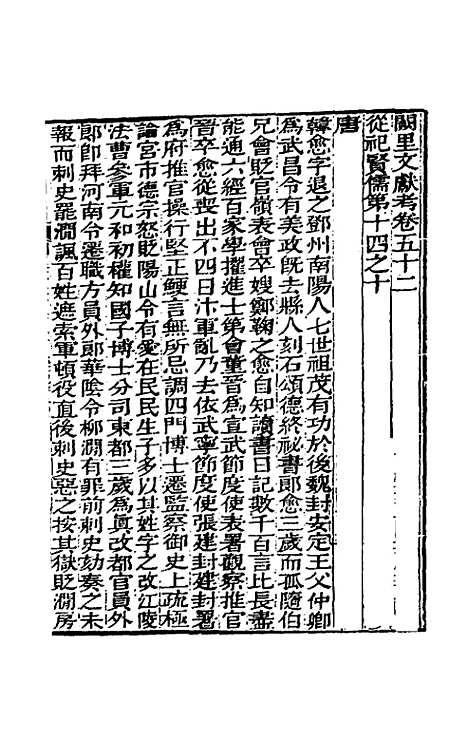 闕里文獻考卷五十二
從祀賢儒第十四之十
唐
韓愈字退之鄧州南陽人七世祖茂有功於後魏封安定王父仲卿
為武昌令有美政既去縣人刻石頌德終祕書郎愈三歲而孤隨伯
兄會貶官嶺表會卒嫂鄭鞠之愈自知讀書日記數千百言比長盡
能通六經百家學擢進士第會董晉為宣武節度使表署觀察推官
晉卒愈從喪出不四日汴軍亂乃去依武寧節度使張建封建封署
為府推官操行堅正鯁言無所忌調四門博士遷監察御史上疏極
論宮市德宗怒貶陽山令有愛在民民生子多以其姓字之改江陵
法曹參軍元和初權知國子博士分司東都三歲為眞改都官員外
郞卽拜河南令遷職方員外郞華陰令柳澗有罪前刺史劾奏之未
報而刺史罷澗諷百姓遮索軍頓役直後刺史惡之按其獄貶澗房